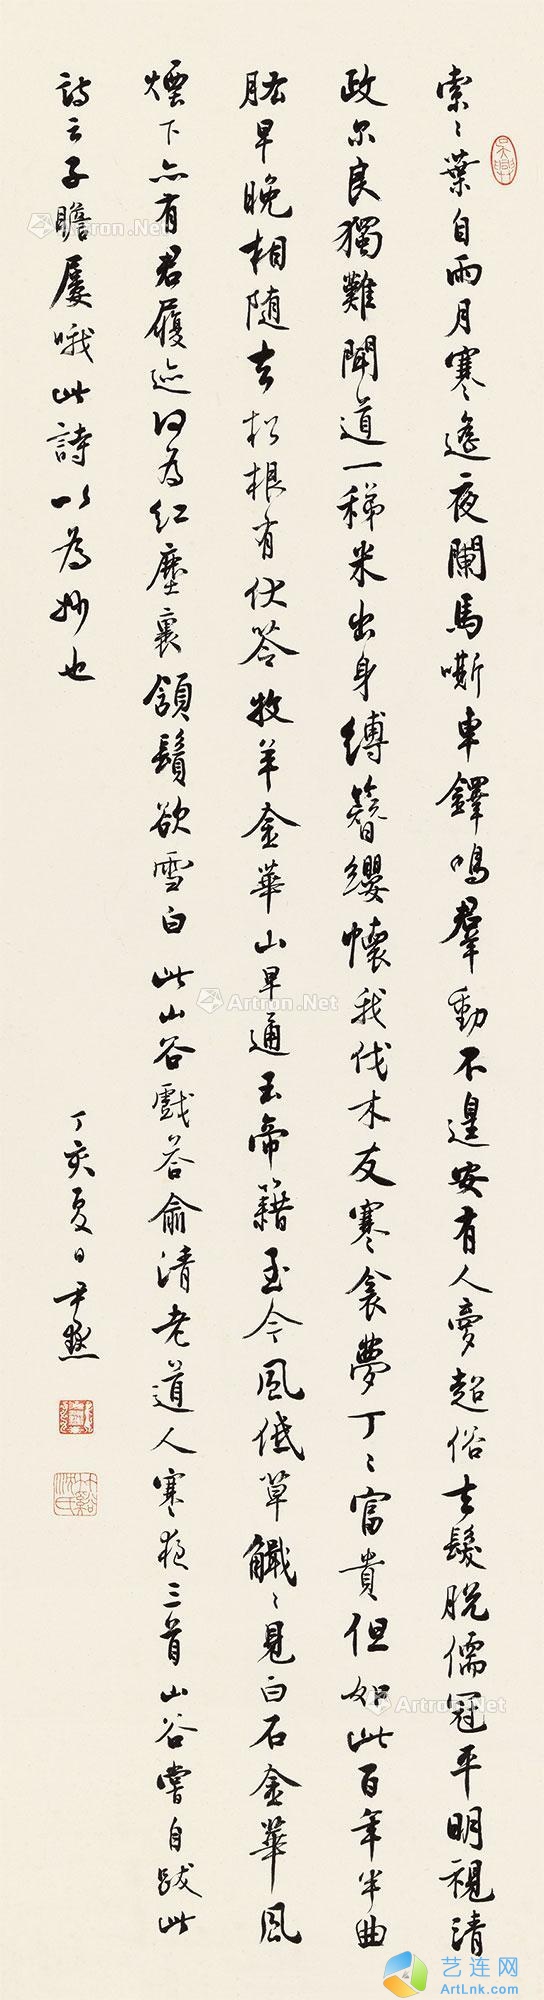 索〻葉自雨月寒遙夜闌馬嘶車鐸鳴羣動不遑安有人夢超俗去髮脫儒冠平明視清
政尔良獨難聞道一稊米出身縛簪纓懷我伐木友寒衾夢丁〻富貴但如此百年半曲
肱早晚相隨去松根有伏苓牧羊金華山早通玉帝籍至今風低草〻見白石金華風
煙下亦有君履迹何為紅塵裏頷鬚欲雪白此山谷戲答俞清老道人寒夜三首山谷嘗自跋此
詩云子瞻屢哦此詩以為妙也
丁亥夏日尹默
竹谿沈氏
Artron.Net
Artron.Net
Artron.Net
Artron.Net
Artron.Net
艺连网
ArtLnk.com